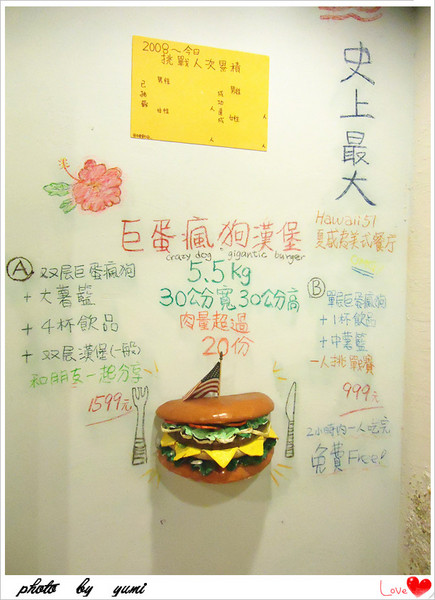 2008～今日
挑戰人次累積
已挑戰
男性
女性
人
人
成功達成
男性
女性
人
人
史上最大
Hawaii51
夏威夷美式餐廳
巨蛋瘋狗漢堡
crazy dog gigantic burger
5.5kg
30公分寬30公分高
肉量超過
20份
Ⓐ 双层巨蛋瘋狗
+ 大薯籃
+ 4杯飲品
+ 双层漢堡(一般)
和朋友一起分享
1599元
Ⓑ 單层巨蛋瘋狗
+ 1杯飲品
+ 中薯籃
一人挑戰賽
999元
2小時內一人吃完
免費 Free!
photo by yumi
Love